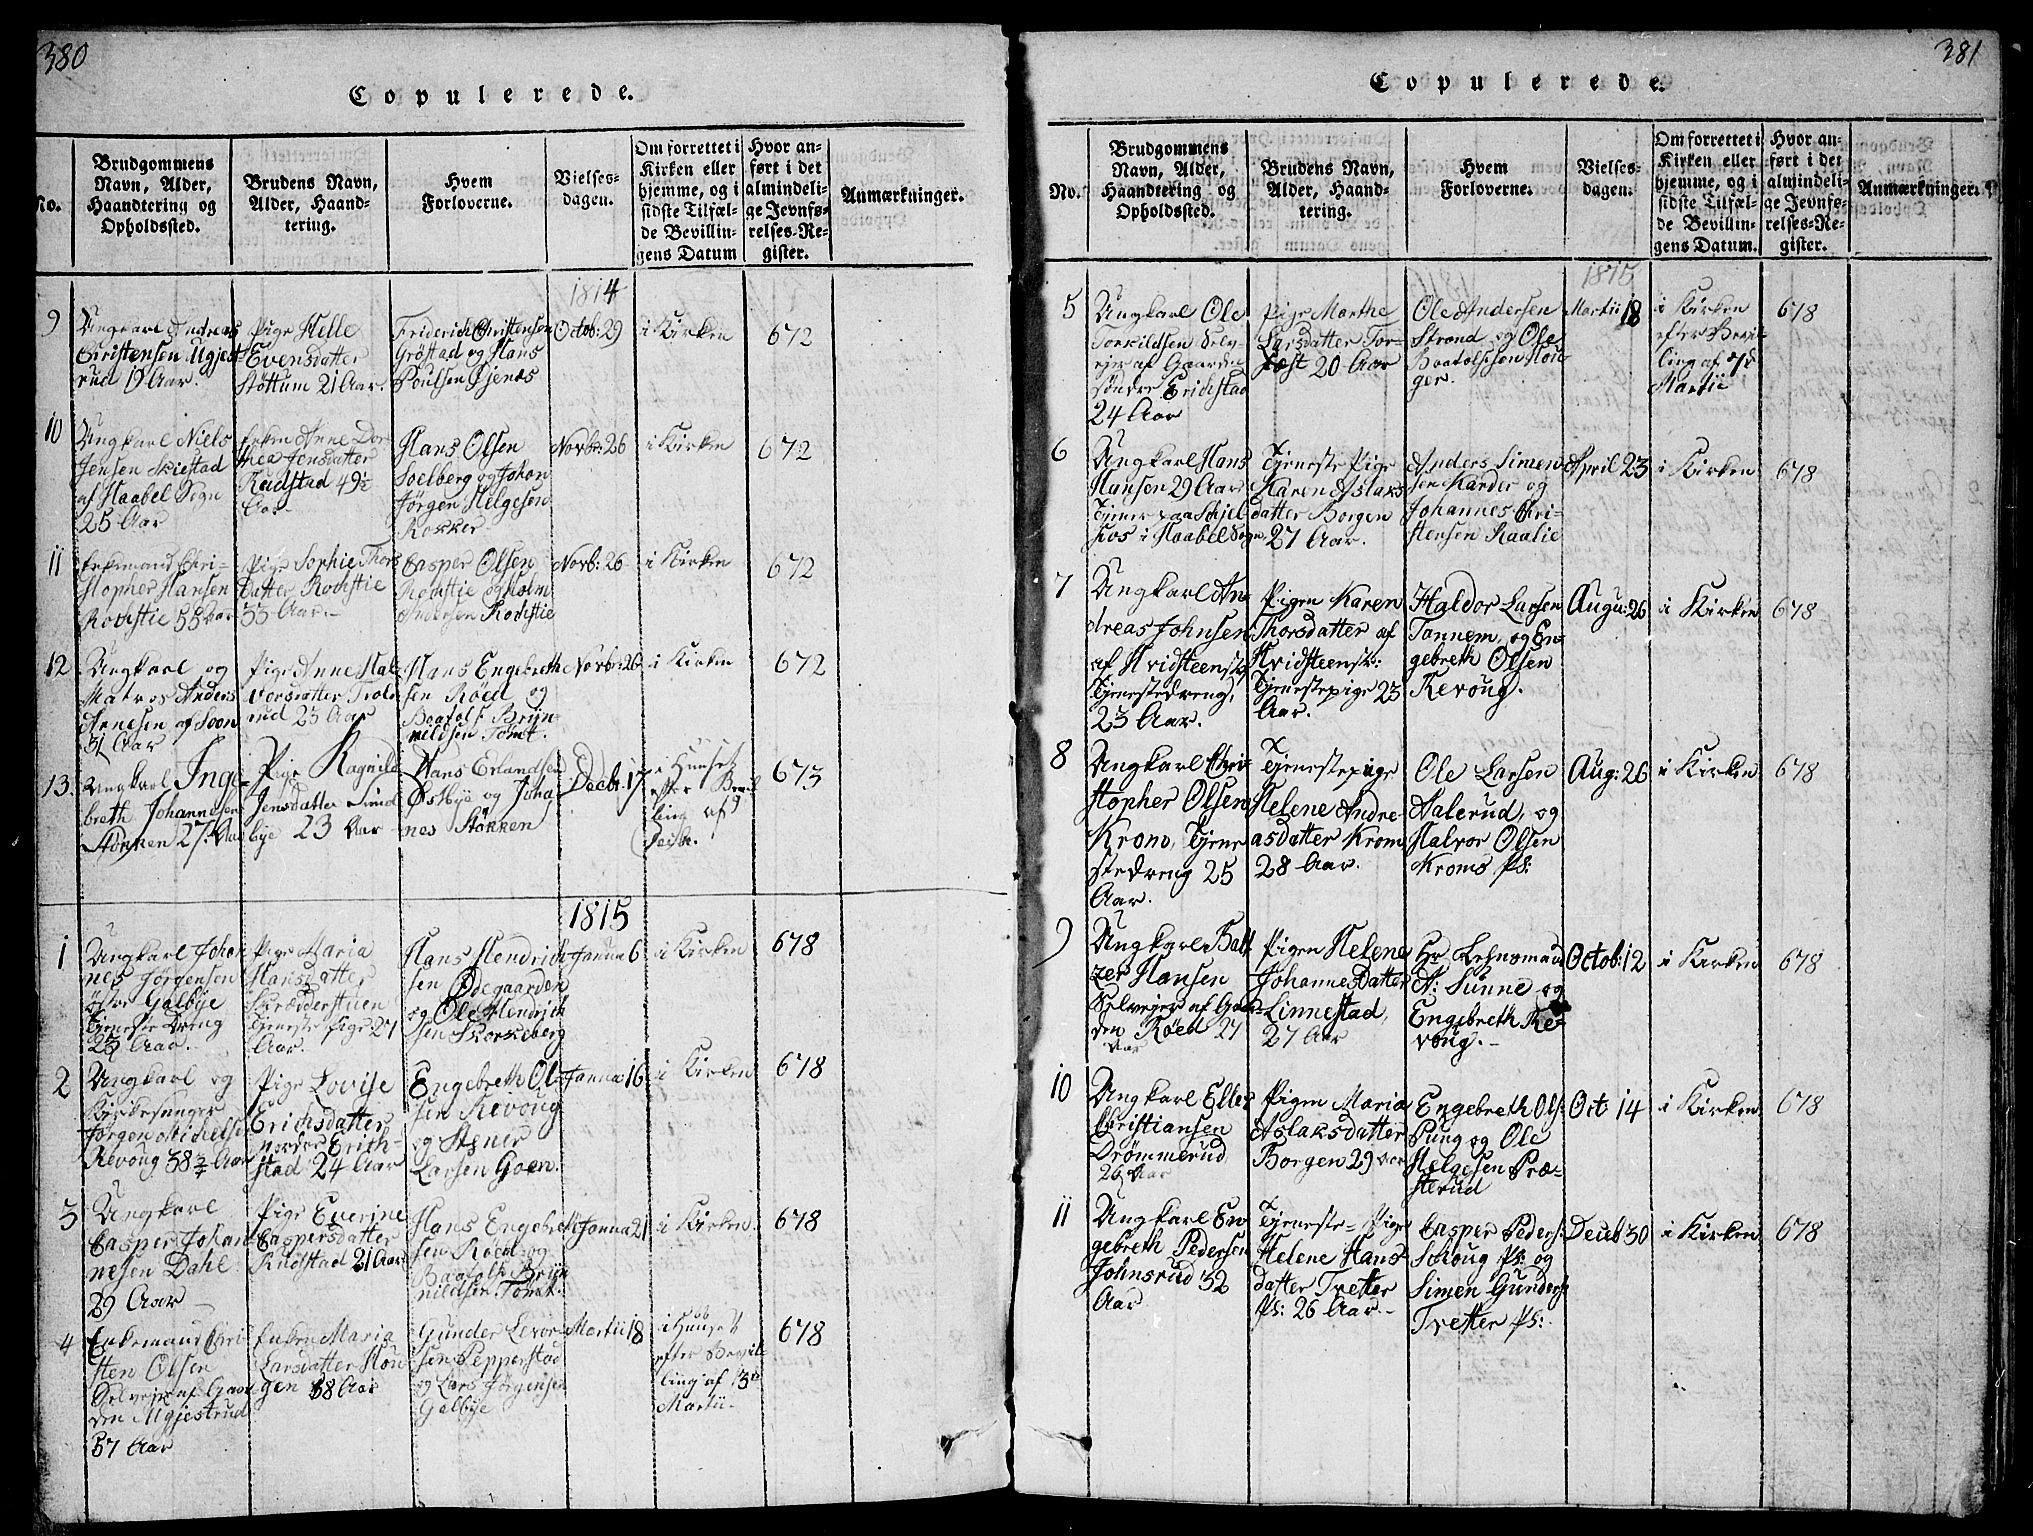 380
Copulerede.
No.
Brudgommens
Navn, Alder,
Haandtering og
Opholdssted.
Brudens Navn,
Alder, Haand-
tering.
Hvem
Forloverne.
Vielses-
dagen.
Om forrettet i
Kirken eller
hjemme, og i
sidste Tilfæl-
de Bevillin-
gens Datum
Hvor an-
ført i det
almindeli-
ge Jevnfø-
relses-Re-
gister.
Anmærkninger.
1814
9
Ungkarl Andreas
Christensen Ugjest
rud 19 Aar.
Pige Helle
Evensdatter
Støttum 21 Aar.
Friderich Christensen
Grøstad og Hans
Poulsen Gjenæs
Octob: 29
i Kirken
672
10
Ungkarl Niels
Jensen Skiestad
af Haabel Sogn
25 Aar
Enken Anne Dor
thea Jensdatter
Rudstad 49½
Aar
Hans Olsen
Soelberg og Johan
Jørgen Helgesen
Rokker
Novbr: 26
i Kirken
672
11
Enkemand Chri-
stopher Hansen
Rodstie 55 Aar
Pige Sophie Thors
Datter Rodstie
33 Aar
Casper Olsen
Rodstie og Holm
Andersen Rodstie
Novb: 26
i Kirken
672
12
Ungkarl og
Matros Anders
Arnesen af Soon
31 Aar
Pige Anne Hal
vorsdatter Trole
rud 23 Aar
Hans Engebreth
sen Røed og
Baatolf Bryn
nildsen Tomt.
Novbr: 26
i Kirken
672
13.
Ungkarl Inge-
breth Johannesen
Stønnen 27 Aar
Pige Ragnild
Jensdatter Sund
bye 23 Aar
Hans Erlandsen
Østbye og Joha
nes Stønnen
Decbr: 17
i Huuset
efter Bevil
ling af 9
Decbr.
673
1815
1
Ungkarl Johan
nes Jørgensen
østre Galbye
Tjeneste Dreng
23 Aar
Pige Maria
Hansdatter
Skrædderstuen
Tjeneste Pige 27
Aar.
Hans Hendrich
sen Ødegaarden
og Ole Hendrich
sen Skorkeberg
Janua 6
i Kirken
678
2
Ungkarl og
Kirkesanger
Jørgen Michelsen
Revoug 38 2/4 Aar
Pige Lovise
Erichsdatter
nordre Erich-
stad 24 Aar
Engebreth Ol-
sen Revoug
og Stener
Larsen Goen.
Janua: 16
i Kirken
678
3
Ungkarl
Casper Johan
nesen Dahl
29 Aar
Pige Everine
Caspersdatter
Rudstad 21 Aar
Hans Engebreth
sen Røed og
Baatolf Bryn
nildsen Tomt.
Janua 21
i Kirken
678
4
Enkemand Chri
sten Olsen
Selveier af Gaar
den Ugjestrud
57 Aar
Enken Maria
Larsdatter Hou
gen 38 Aar
Gunder Levor-
sen Pepperstad
og Lars Jørgensen
Galbye
Martii 18
i Huuset
efter Bevil-
ling af 13de
Martii
678
381
Copulerede.
No.
Brudgommens
Navn, Alder,
Haandtering og
Opholdssted.
Brudens Navn,
Alder, Haand-
tering.
Hvem
Forloverne.
Vielses-
dagen.
Om forrettet i
Kirken eller
hjemme, og i
sidste Tilfæl-
de Bevillin-
gens Datum.
Hvor an-
ført i det
almindeli-
ge Jevnfø-
relses-Re-
gister.
Anmærkninger.
1815
5
Ungkarl Ole
Torkildsen Selv
eier af Gaarden
søndre Erichstad
24 Aar
Pige Marthe
Larsdatter Tor-
fæst 20 Aar
Ole Andersen
Strand og Ole
Baatolfsen Hou
ger.
Martii 18
i Kirken
efter Bevil-
ling af 7de
Martii
678
6
Ungkarl Hans
Hansen 29 Aar
Tjener paa Skjel
fos i Haabel Sogn
Tjeneste Pige
Karen Aslaks
datter Borgen
27 Aar.
Anders Simen
sen Karder og
Johannes Chri-
stensen Kaalie
April 23
i Kirken
678
7
Ungkarl An
dreas Johnsen
af Hvidsteensk:
Tjenestedreng,
23 Aar.
Pigen Karen
Thorsdatter af
Hvidsteensk:
Tjenestepige 23
Aar.
Haldor Larsen
Tannem, og En
gebreth Olsen
Revoug.
Augu: 26
i Kirken
678
8
Ungkarl Chri-
stopher Olsen
Krom, Tjene
stedreng 25
Aar.
Tjenestepige
Helene Andre-
asdatter Krom
28 Aar.
Ole Larsen
Aalerud, og
Halvor Olsen
Kroms Pl:
Aug: 26
i Kirken
678
9
Ungkarl Balt
zer Hansen
Selveier af Gaar-
den Røed 27
Aar
Pigen Helene
JohannesDatter
Linnestad,
27 Aar
Hr Lehnsmand
A: Sunne og
Engebreth Re-
voug.
Octob: 12
i Kirken
678
10
Ungkarl Eller
Christiansen
Drømmerud
26 Aar
Pigen Maria
Aslaksdatter
Borgen 29 Aar
Engebreth Ols:
Pung og Ole
Helgesen Præ-
sterud
Oct 14
i Kirken
678
11
Ungkarl En
gebreth Pedersen
Johnsrud 32
Aar
Tjeneste-Pige
Helene Hans-
datter Tvetter
Pl: 26 Aar
Casper Peders:
Schoug Pl: og
Simen Gunders:
Tvetter Pl:
Deceb 30
i Kirken
678